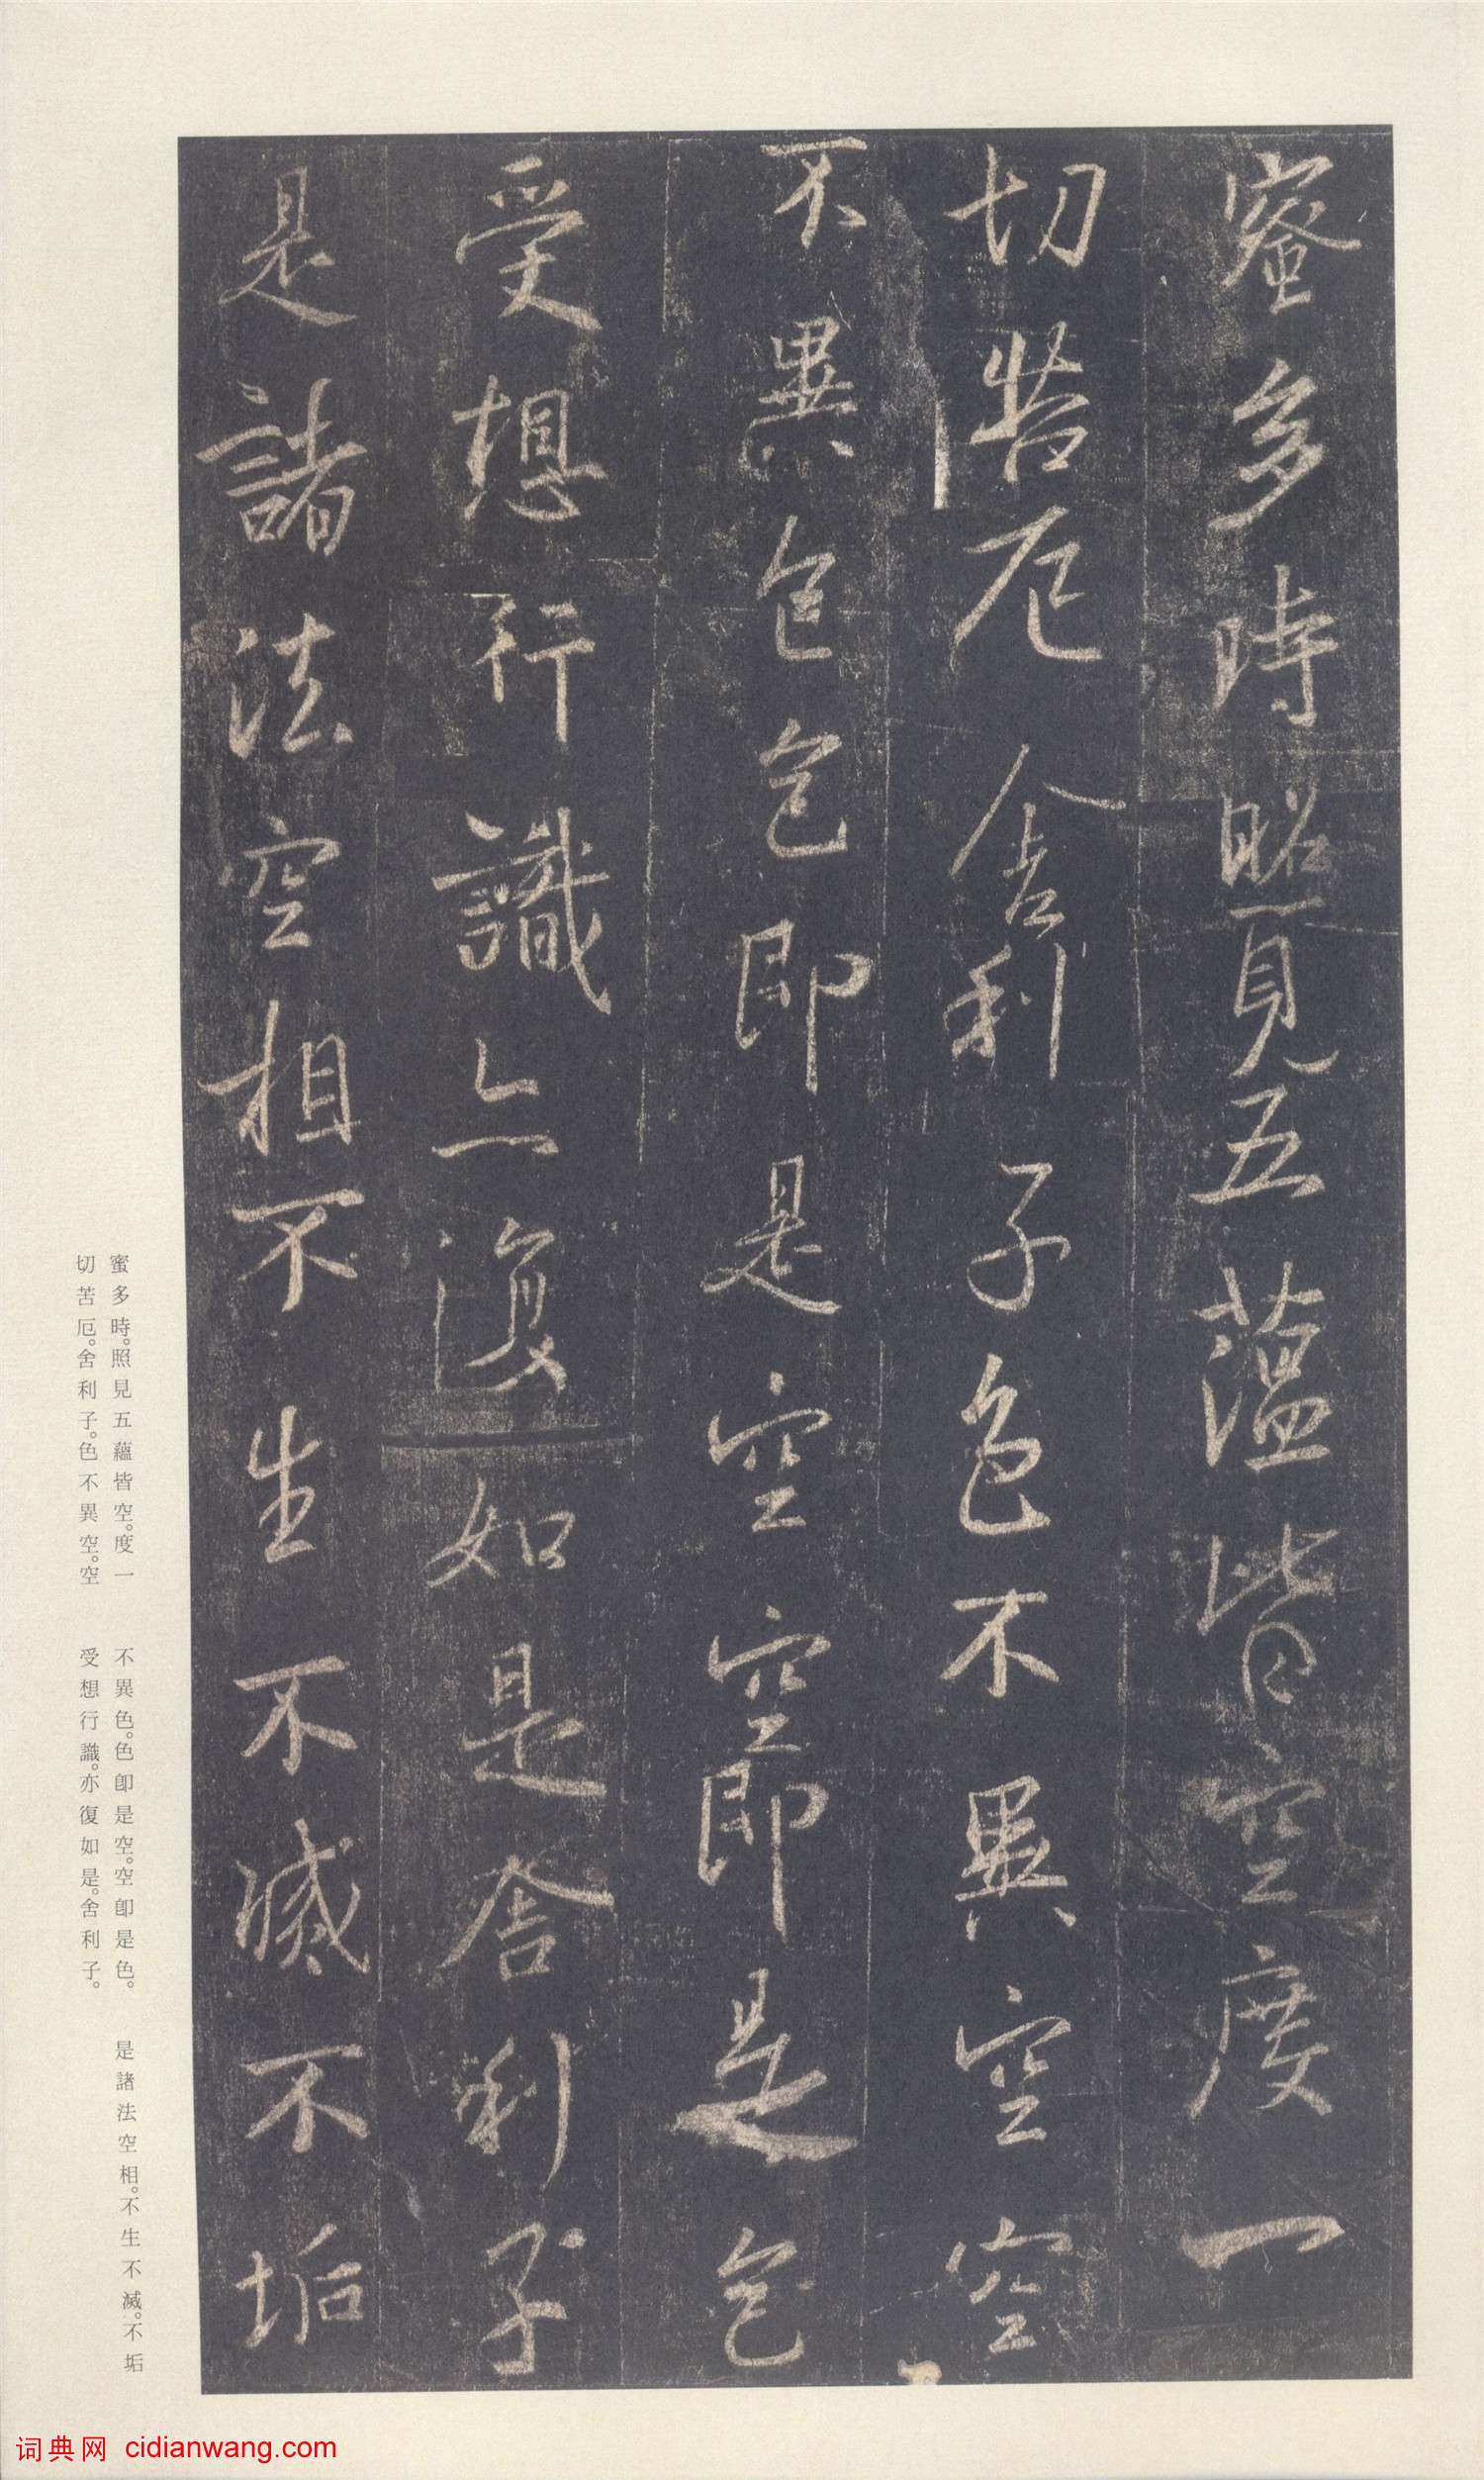 蜜多時照見五蘊皆空度一
切苦厄舍利子色不異空空
不異色色即是空空即是色
受想行識亦復如是舍利子
是諸法空相不生不滅不垢
蜜多時。照見五蘊皆空。度一
切苦厄。舍利子。色不異空。空
不異色。色卽是空。空卽是色。
受想行識。亦復如是。舍利子。
是諸法空相。不生不滅。不垢
词典网 cidianwang.com